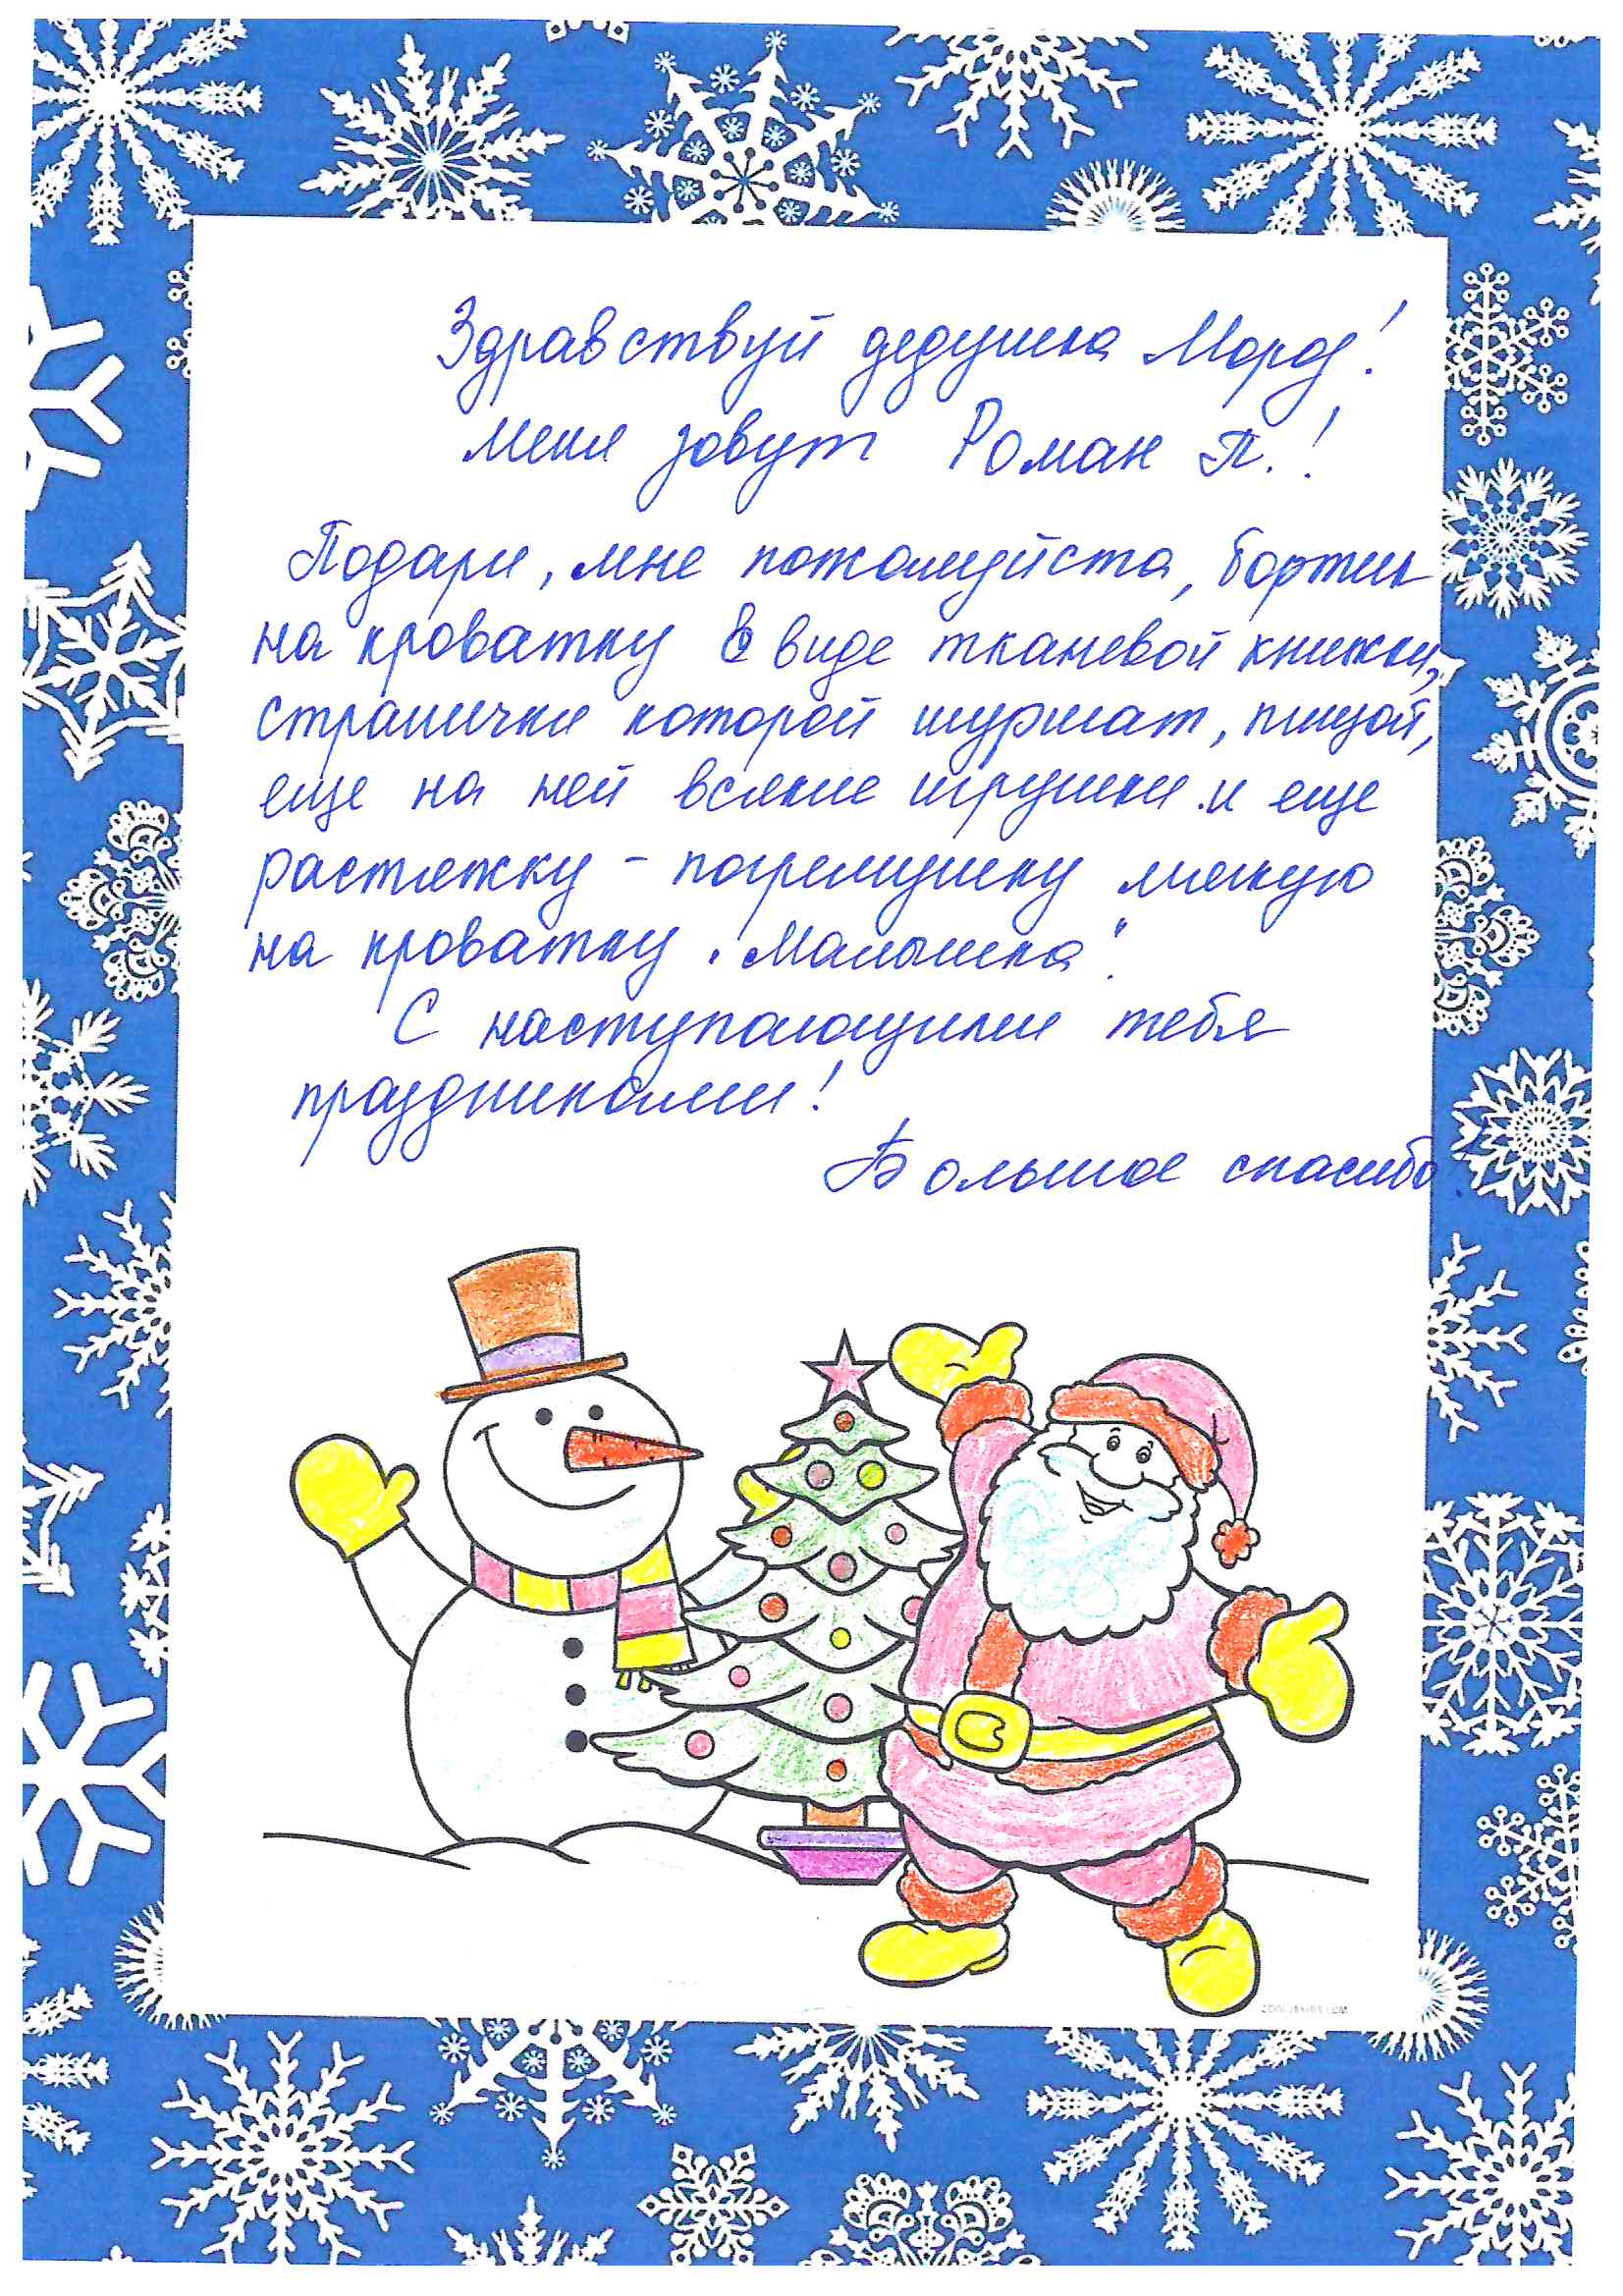 Здравствуй дедушка Мороз!
Меня зовут Роман П.!
Подари, мне пожалуйста, бортик
на кроватку в виде тканевой книжки,
странички которой шуршат, пищат,
еще на ней всякие игрушки и еще
растяжку - погремушку мягкую
на кроватку "Малышка".
С наступающими тебя
праздниками!
Большое спасибо!